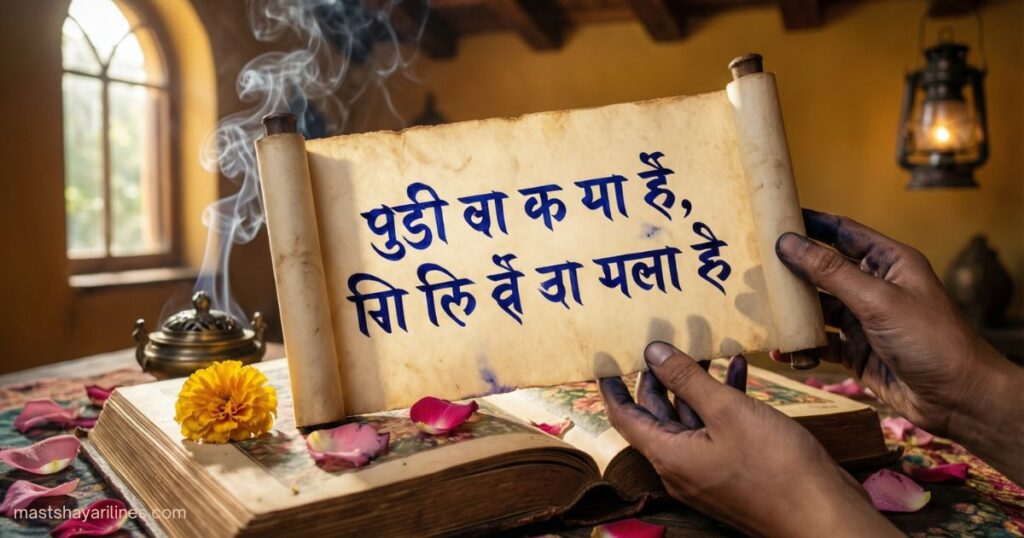 पुडी वा क या है,
गि लि र्वे वा पला है
mastshayarilines.com